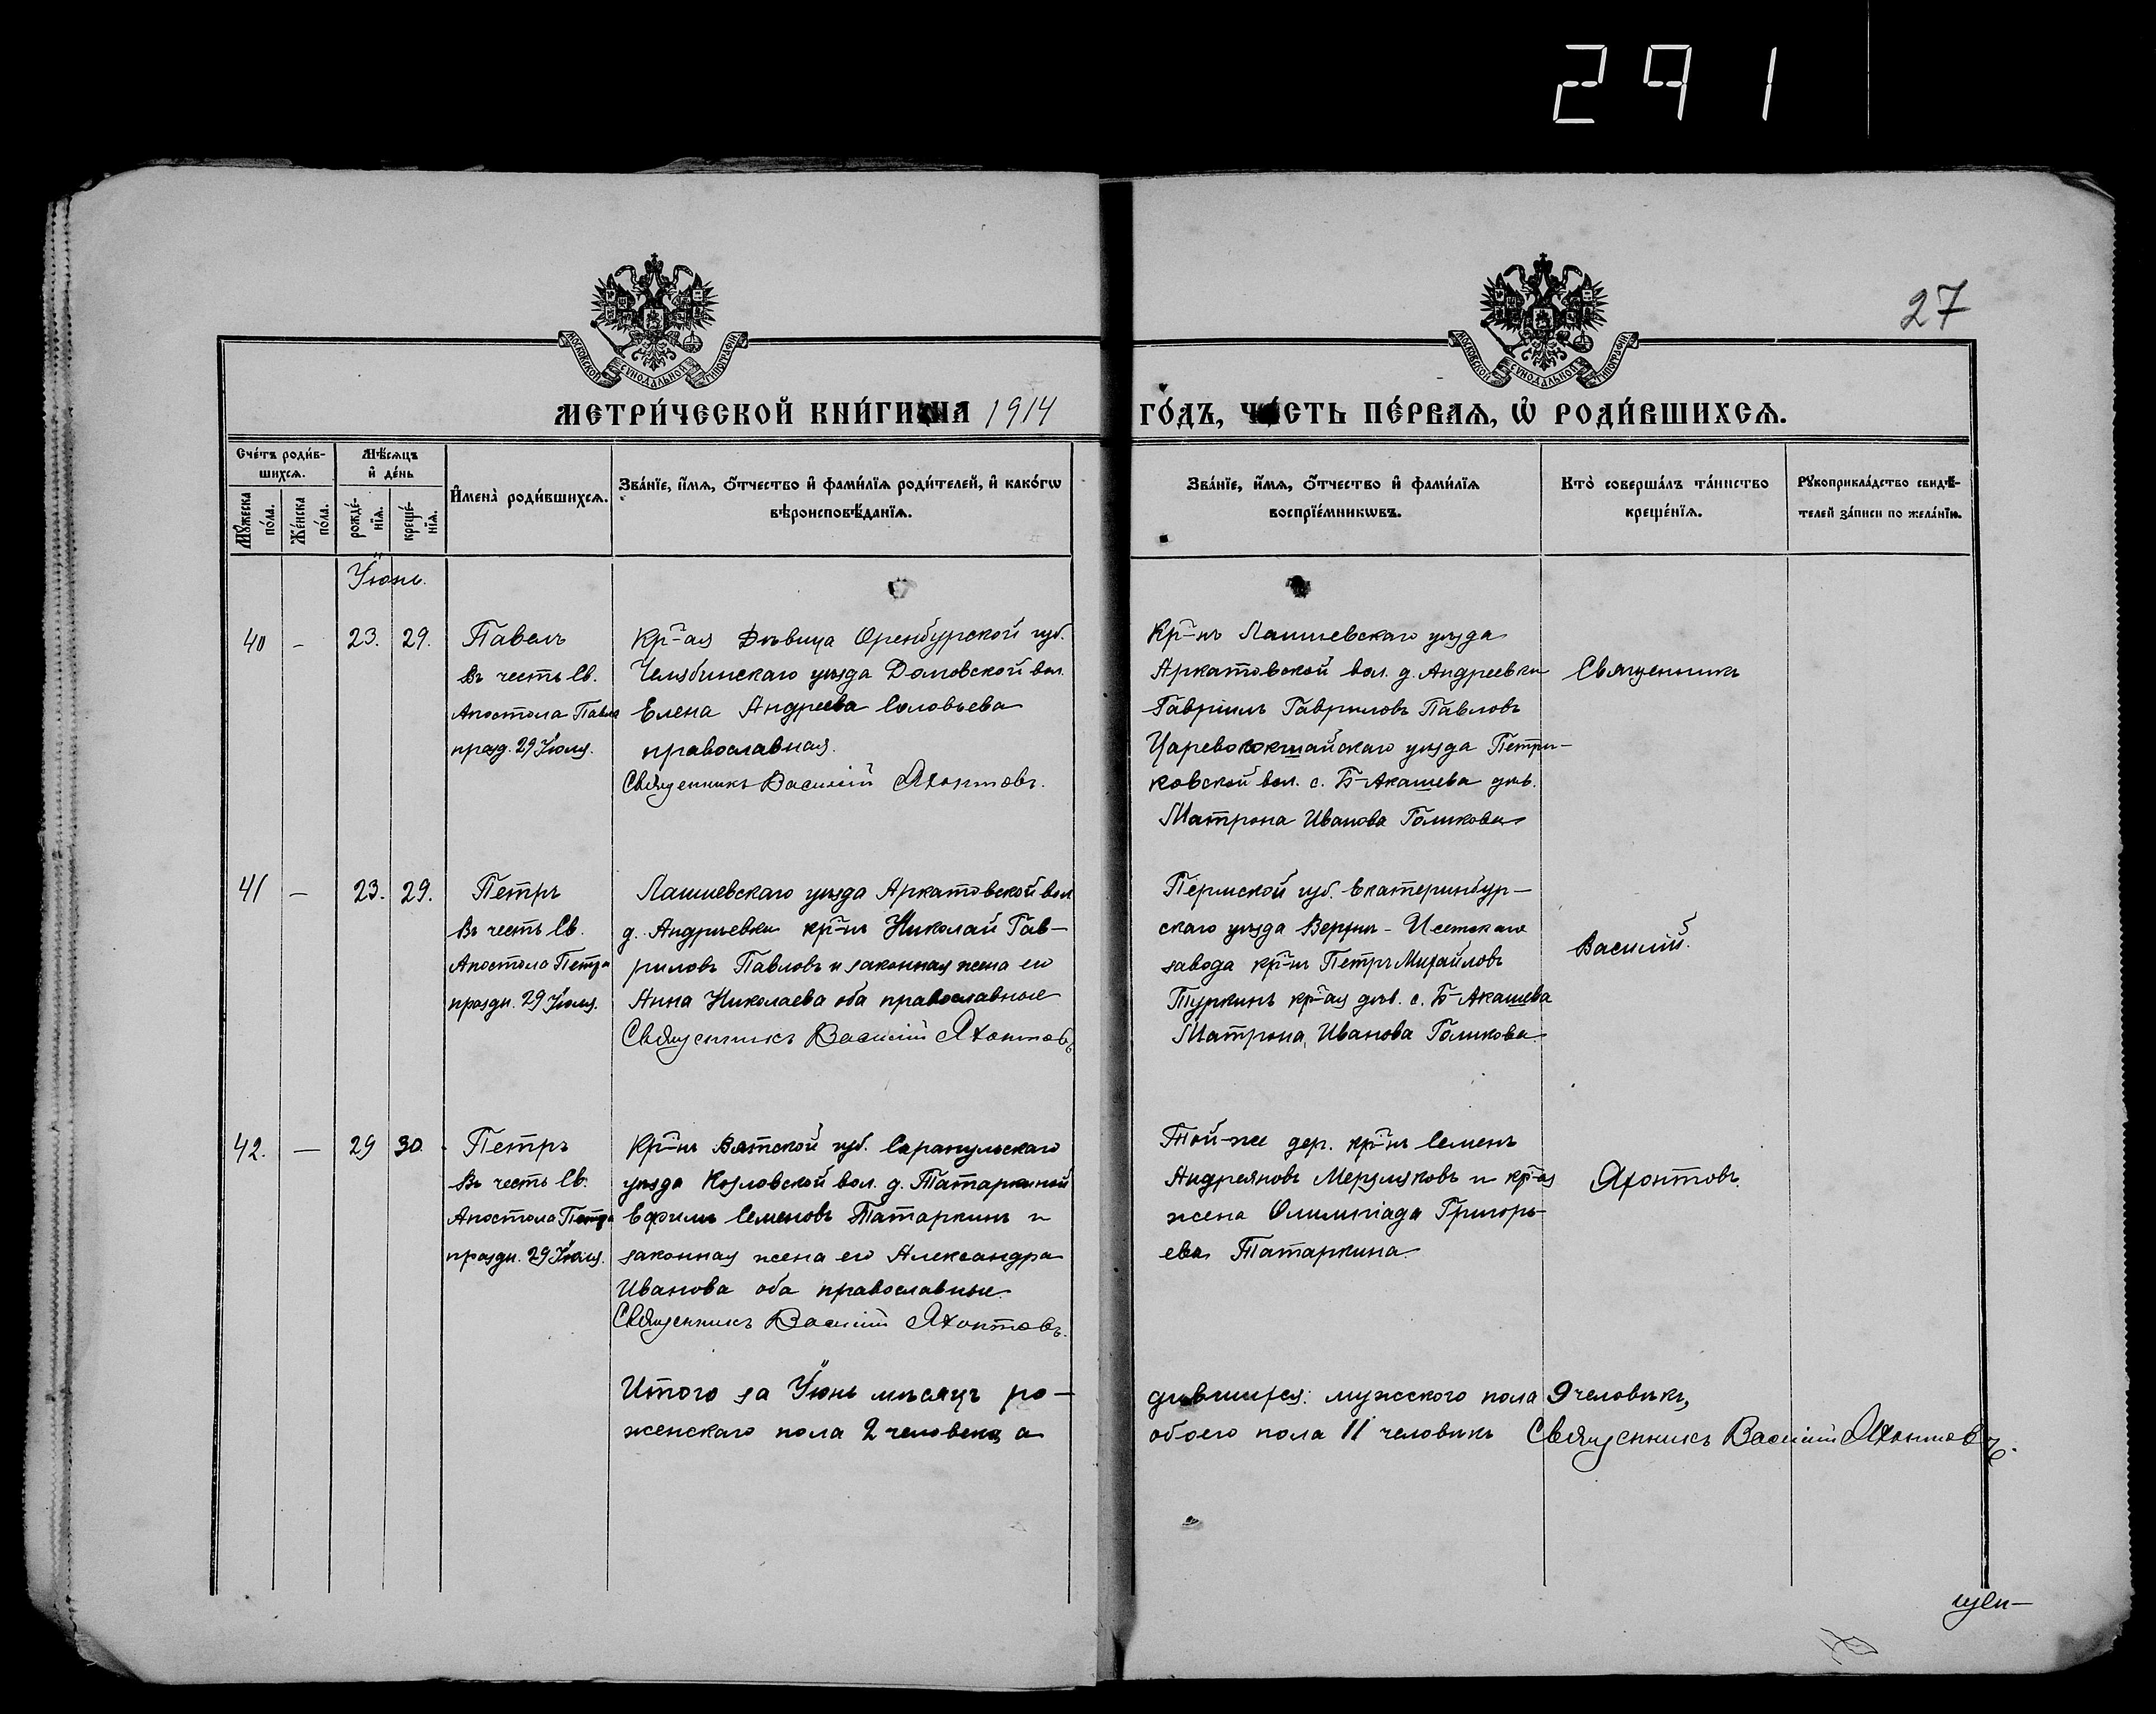 291
27
МОСКОВСКОЙ СѴНОДАЛЬНОЙ ТИПОГРАФІИ
МОСКОВСКОЙ СѴНОДАЛЬНОЙ ТИПОГРАФІИ
МЕТРИ́ЧЕСКОЙ КНИ́ГИ НА 1914
ГО́ДЪ, ЧА́СТЬ ПЕ́РВАѦ, Ѡ҆ РОДИ́ВШИХСѦ.
Сче́тъ роди́в-
шихсѧ.
Мꙋ́жеска по́ла.
Же́нска по́ла.
Мѣ́сѧцъ
и҆ де́нь
рожде́-
нїѧ.
креще́-
нїѧ.
И҆мена̀ роди́вшихсѧ.
Зва́нїе, и҆́мѧ, ѻ҆́тчество и҆ фами́лїѧ роди́телей, и҆ како́гѡ
вѣроисповѣ́данїѧ.
Зва́нїе, и҆́мѧ, ѻ҆́тчество и҆ фами́лїѧ
воспрїе́мникѡвъ.
Кто̀ соверша́лъ та́инство
креще́нїѧ.
Рꙋкоприкла́дство свидѣ́-
телей за́писи по жела́нїю.
Іюнь.
40 - 23. 29.
Павелъ
Въ честь Св.
Апостола Павла
празд. 29 Іюня.
Кр-ая дѣвица Оренбургской губ.
Челябинскаго уѣзда Долговской вол.
Елена Андреева Соловьева
православная.
Священникъ Василій Яхонтовъ.
Кр-нъ Лаишевскаго уѣзда
Аркатовской вол. д. Андреевки
Гавріилъ Гавриловъ Павловъ
Царевококшайскаго уѣзда Петри-
ковской вол. с. Б-Акашева дѣв.
Матрона Иванова Голикова
Священникъ
41 - 23. 29.
Петръ
Въ честь Св.
Апостола Петра
праздн. 29 Іюня.
Лаишевскаго уѣзда Аркатовской вол
д. Андрѣевки кр-нъ Николай Гав-
риловъ Павловъ и законная жена его
Анна Николаева оба православные
Священникъ Василій Яхонтовъ
Пермской губ. Екатеринбур-
скаго уѣзда Верхъ-Исетскаго
завода кр-нъ Петръ Михайловъ
Туркинъ кр-ая дѣв. с. Б-Акашева
Матрона Иванова Голикова
Василій.
42. - 29 30.
Петръ
Въ честь Св.
Апостола Петра
праздн. 29 Іюня.
Кр-нъ Вятской губ. Сарапульскаго
уѣзда Козловской вол. д. Татаркиной
Ефимъ Семеновъ Татаркинъ и
законная жена его Александра
Иванова оба православные.
Священникъ Василій Яхонтовъ.
Той-же дер. кр-нъ Семенъ
Андреяновъ Мерзляковъ и кр-ая
жена Олимпіада Григорь-
ева Татаркина.
Яхонтовъ.
Итого за Іюнь мѣсяцъ ро-
дившихся: мужского пола 9 человѣкъ,
женскаго пола 2 человека, а
обоего пола 11 человѣкъ Священникъ Василій Яхонтовъ.